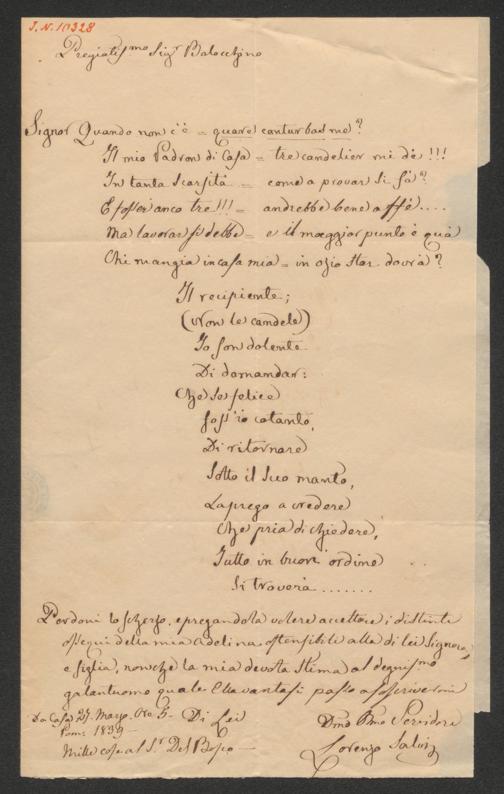 J. N. 10328
Pregiatis.mo Sig.r Balocchino
Signor Quando non c'è = quare conturbas me?
Il mio Padron di Casa = tre candelier mi dè!!!
In tanta Scarsità = come a provar Si fà?
E fosser anco tre!!! = andrebbe bene affè....
Ma lavorar si debbe = e il maggior punto è quà
Chi mangia in casa mia = in ozio star dovrà?
Il recipiente;
(Non le candele)
Io son dolente
Di domandar:
Che se felice
foss'io cotanto,
Di ritornare
Sotto il Suo manto,
La prego a credere
Che pria di chiedere,
Tutto in buon ordine
Si troverà........
Perdoni lo scherzo, e pregandola volere accettare i distinti
ossequi della mia Adelina, ostensibili alla di lei Signora,
e figlia, nonchè la mia devota Stima al degnismo
galantuomo quale Ella vantasi passo a soscrivermi
Da Casa 27. Marzo. Ore 5- Di Lei
1839 -
Mille cose al S.r Del Bosco - Servidore
Lorenzo Salvi